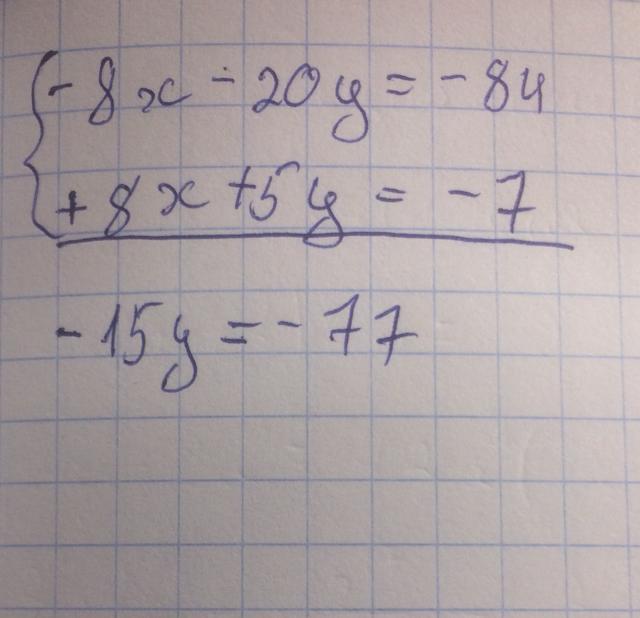 -8x - 20y = -84
+8x + 5y = -7
-15y = -77